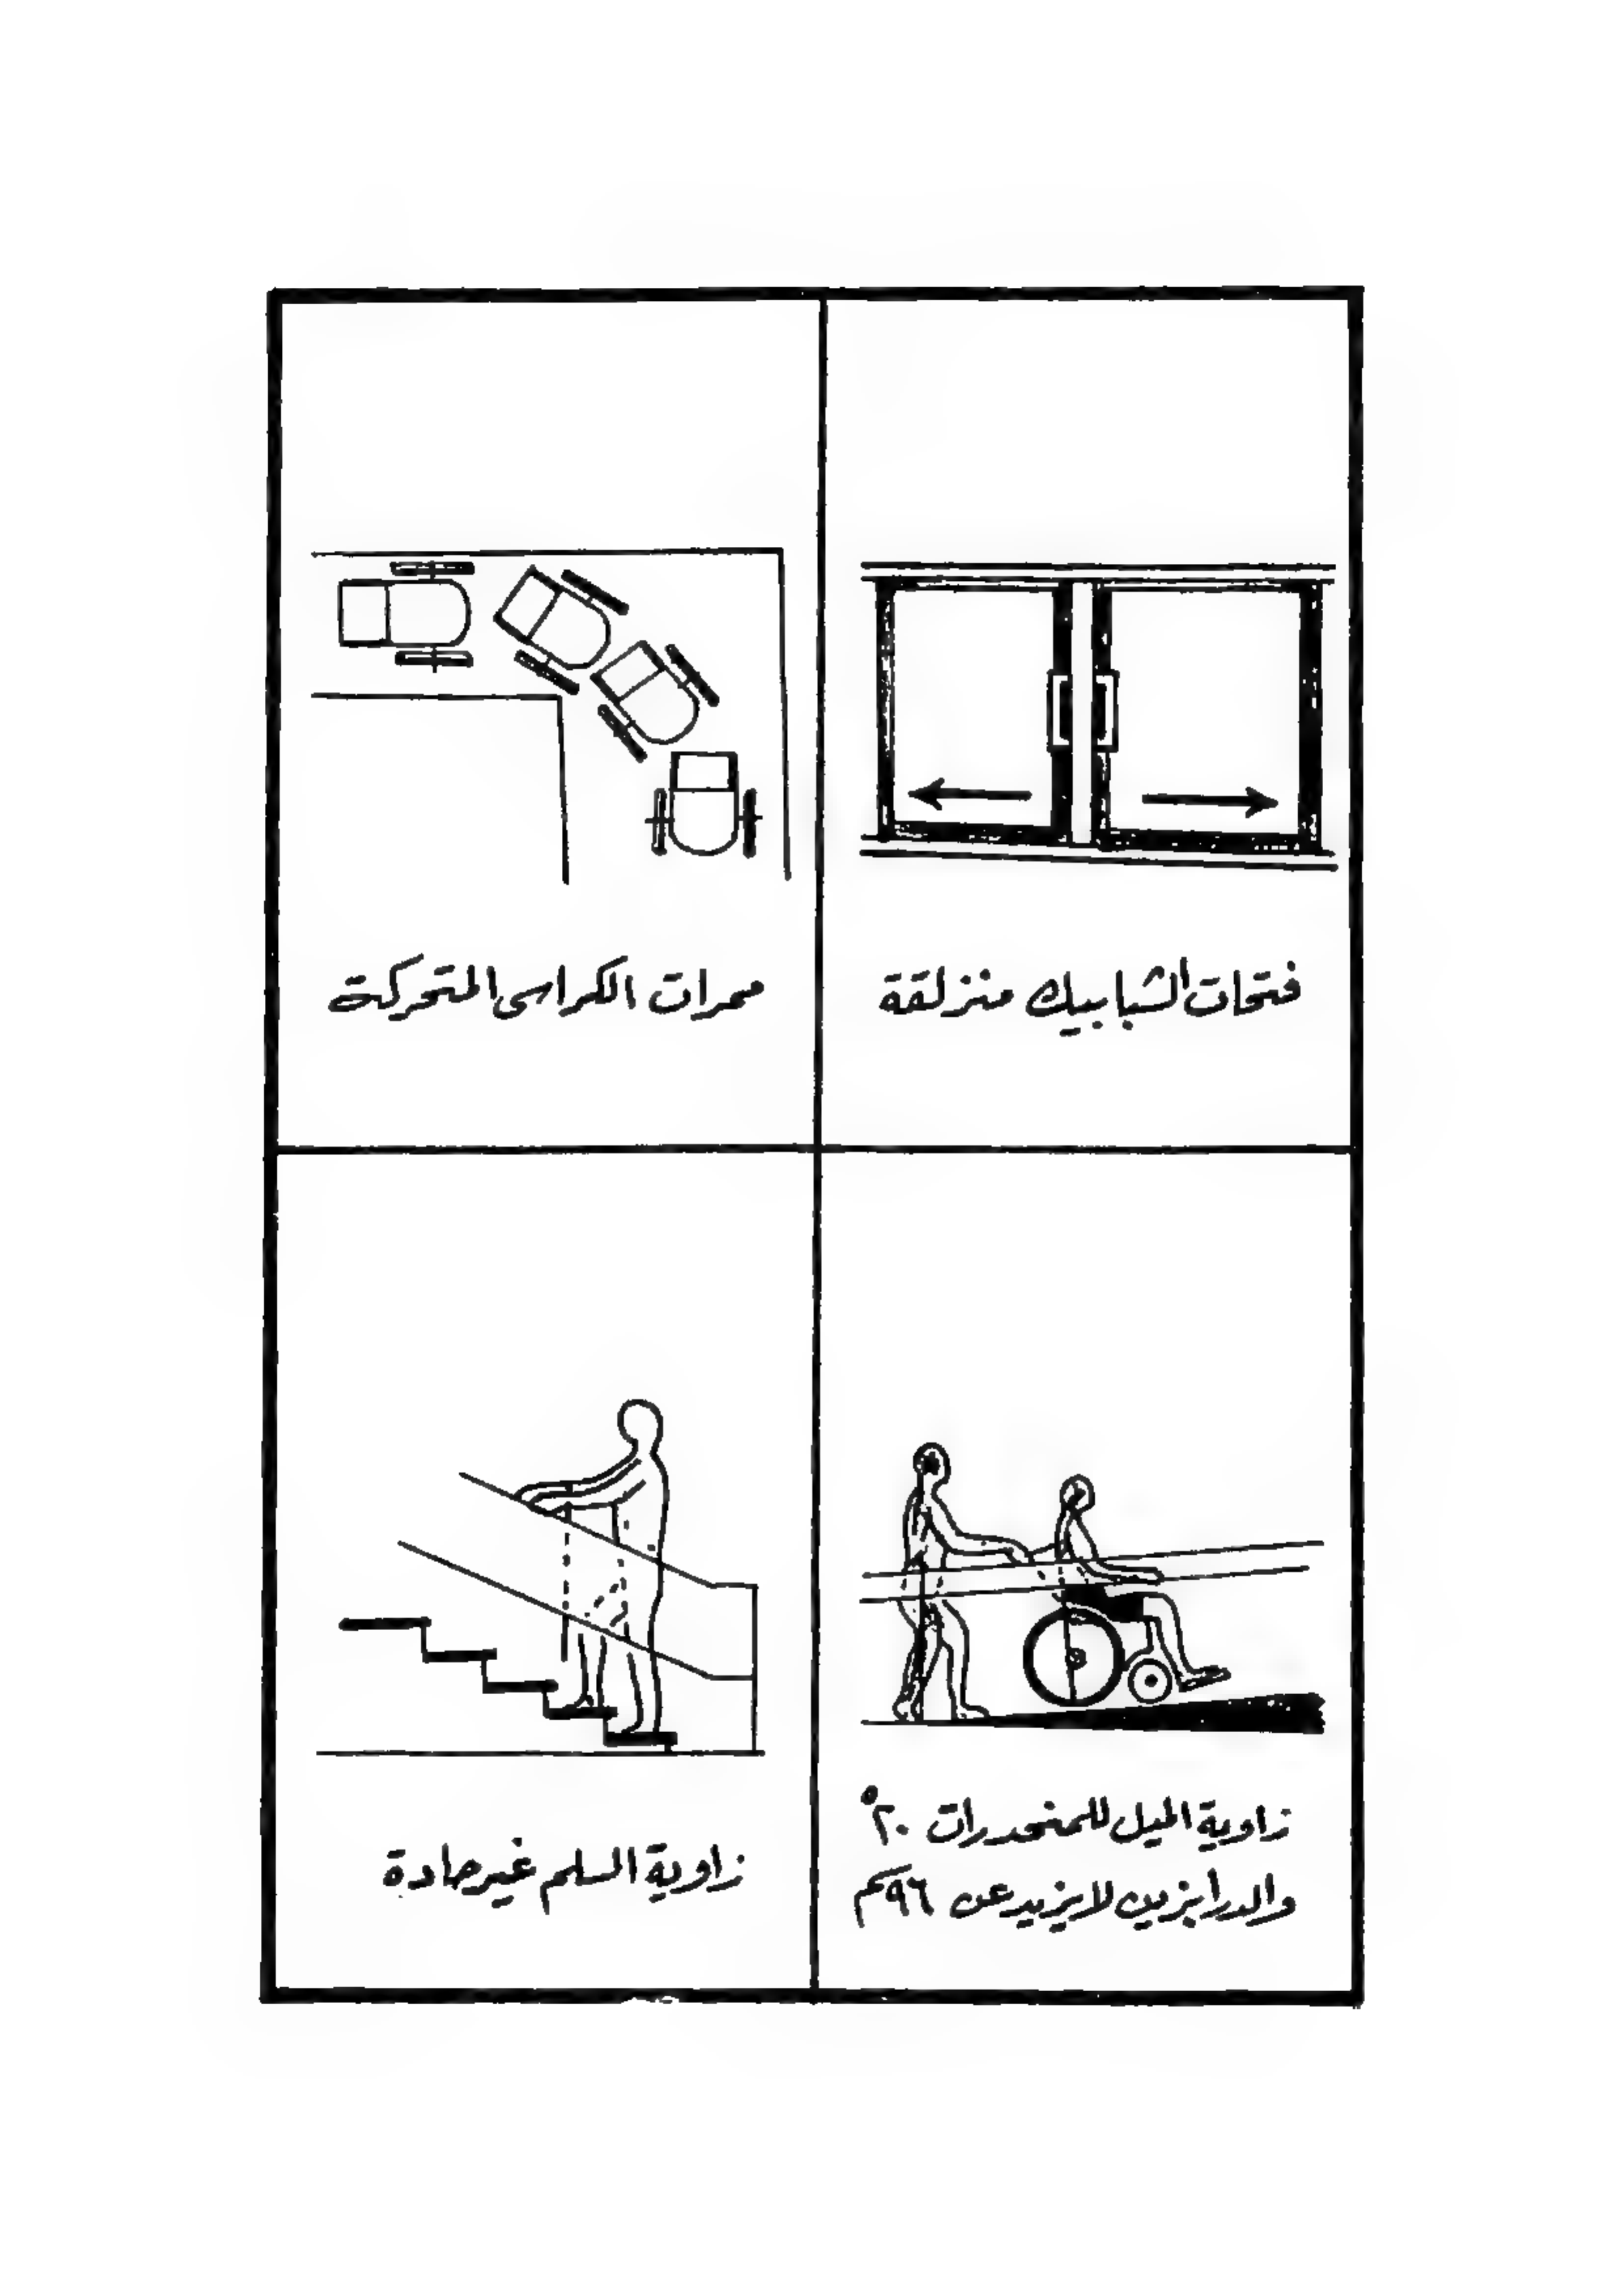 فتحات الشبابيك منزلقة
ممرات الكراسى المتحركة
زاوية الميل للمنحدرات ٢٠°
والدرابزين لا يزيد عن ٩٦ سم
زاوية السلم غير حادة